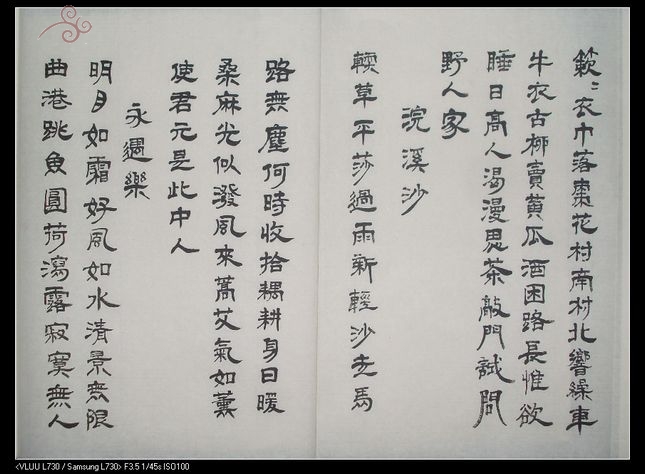 簌〻衣巾落棗花村南村北響繰車
牛衣古柳賣黄瓜酒困路長惟欲
睡日高人渴漫思茶敲門試問
野人家
浣溪沙
輭草平莎過雨新輕沙走馬
路無塵何時收拾耦耕身日暖
桑麻光似潑風來蒿艾氣如薰
使君元是此中人
永遇樂
明月如霜好風如水清景無限
曲港跳魚圓荷瀉露寂寞無人
<VLUU L730 / Samsung L730> F3.5 1/45s ISO100